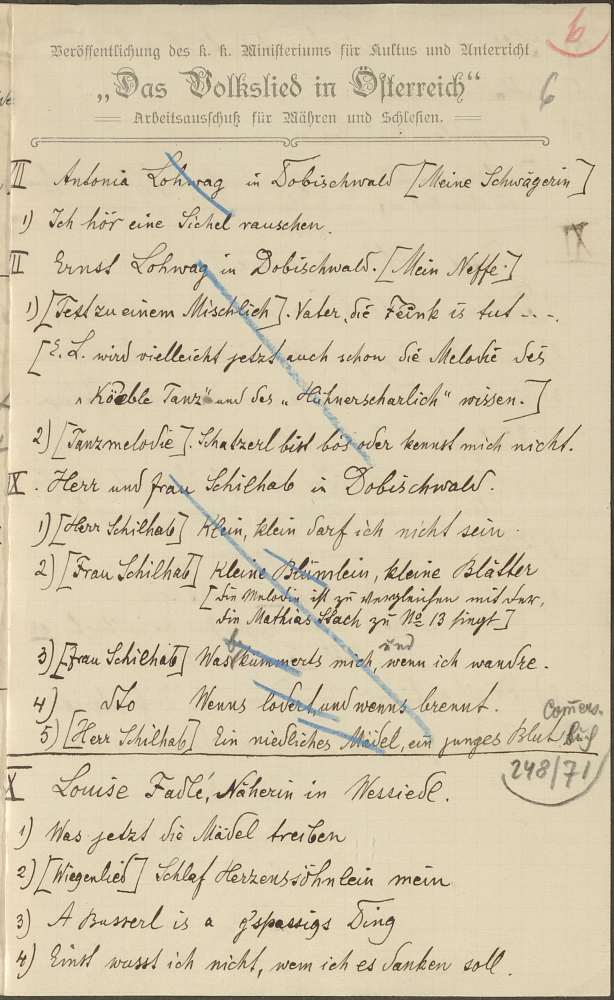 Veröffentlichung des k. k. Ministeriums für Kultus und Unterricht
6
„Das Volkslied in Österreich“
6
Arbeitsausschuß für Mähren und Schlesien.
VII Antonia Lohwag in Dobischwald [Meine Schwägerin]
1) Ich hör eine Sichel rauschen.
IX
VIII Ernst Lohwag in Dobischwald. [Mein Neffe.]
1) [Text zu einem Mischlich]. Vater, die Feink is tut - -.
[E. L. wird vielleicht jetzt auch schon die Melodie des
„Köeble Tanz“ und des „Hühnerscharlich“ wissen.]
2) [Tanzmelodie]. Schatzerl bist bös oder kennst mich nicht.
IX. Herr und Frau Schilhab in Dobischwald.
1) [Herr Schilhab] Klein, klein darf ich nicht sein.
2) [Frau Schilhab] Kleine Blümlein, kleine Blätter
[die Melodie ist zu vergleichen mit der,
die Mathias Stach zu No 13 singt]
3) [Frau Schilhab] Was kümmerts mich, wenn ich wandre.
be und
4) dto Wenns lodert und wenns brennt.
5) [Herr Schilhab] Ein niedliches Mädel, ein junges Blut
Com̄ers-
buch
248/71
X Louise Fadlé, Näherin in Wessiedl.
1) Was jetzt die Mädel treiben
2) [Wiegenlied] Schlaf Herzenssöhnlein mein
3) A Busserl is a g'spassigs Ding
4) Einst wusst ich nicht, wem ich es danken soll.